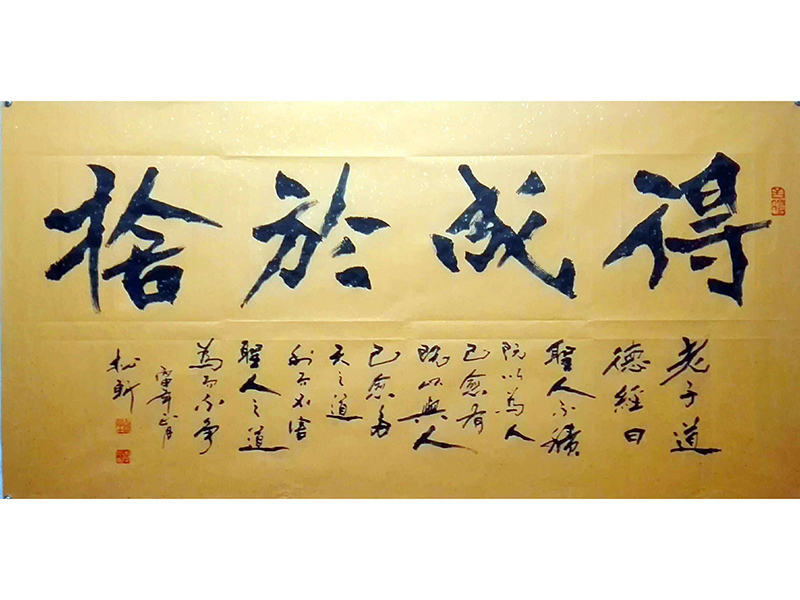 得成於捨
老子道
德經曰
聖人不積
既以為人
己愈有
既以與人
己愈多
天之道
利而不害
聖人之道
為而不爭
丙申年正月
松